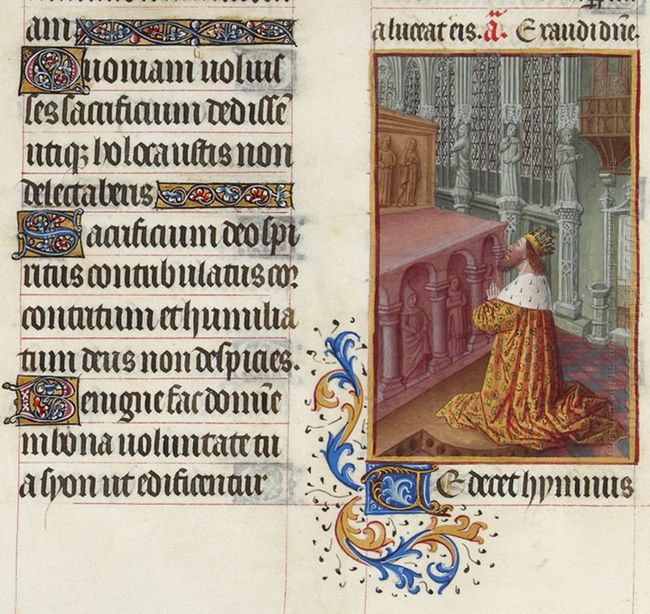 am.
Quoniam voluis
ses sacrificium dedissē
utiq; holocaustis non
delectaberis
Sacrificium deo spi
ritus contribulatus cor
contritum et humilia
tum deus non despicies.
Benigne fac domine
in bona voluntate tu
a syon ut edificentur
a luceat eis. a Exaudi dn̄e.
Te decet hymnus